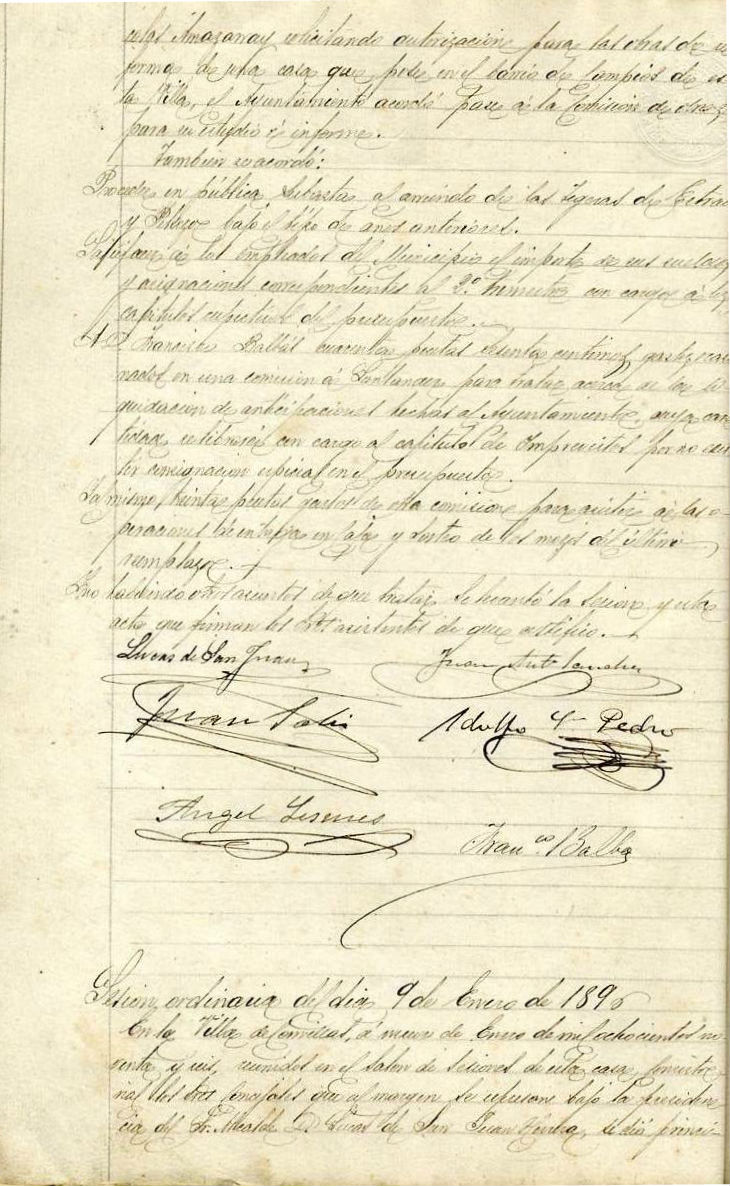 solicitando autorización para las obras de re
forma de una casa que posé en el barrio de Campios de es
ta Villa, el Ayuntamiento acordó pase á la Comision de obras
para su estudio é informe.
Tambien se acordó:
Proceder en pública subasta al arriendo de las
y bajo el tipo de años anteriores.
Satisfacer á los empleados del Municipio el importe de sus sueldos
y asignaciones correspondientes al 2º trimestre con cargo á los
capítulos respectivos del presupuesto.
A D. Francisco Balbás cuarenta pesetas sesenta centimos, gastos ocasio
nados en una comision á Santander para tratar acerca de la li
quidacion de anticipaciones hechas al Ayuntamiento, cuya can
tidad se librará con cargo al capítulo de Imprevistos por no exis
tir consignacion especial en el presupuesto.
Al mismo, treinta pesetas gastos de otra comision para asistir á las o-
peraciones de entrega en Caja y sorteo de los mozos del último
reemplazo.
Y no habiendo otros asuntos de que tratar se levantó la sesion y esta
acta que firman los Sres asistentes de que certifico.
Lucas de San Juan
Juan Antº Sanchez
Juan
Adolfo Sn Pedro
Angel
Franco. Balbás
Sesion ordinaria del dia 9 de Enero de 1896
En la Villa de Comillas, á nueve de Enero de mil ochocientos no
venta y seis, reunidos en el salon de sesiones de esta casa Consisto
rial los Sres Concejales que al margen se espresan bajo la presiden
cia del Sr. Alcalde D. Lucas de San Juan se dió princi-